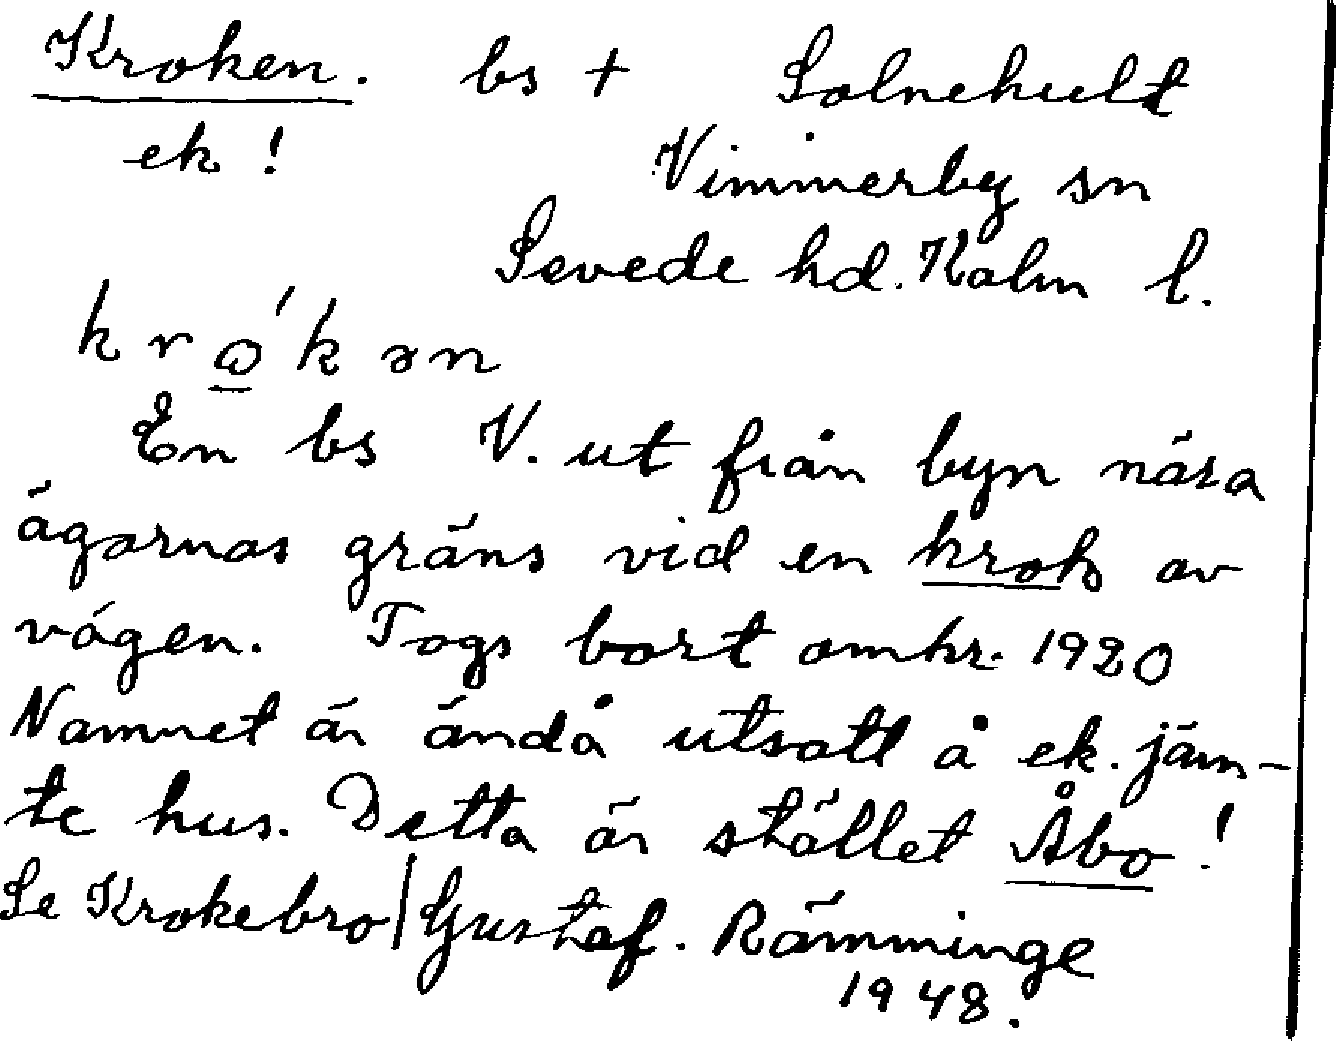 Kroken. bs + Solnehult
ek! Vimmerby sn
Sevede hd. Kalm l.
krώ̲kən
En bs V. ut från byn nära
ägornas gräns vid en krok av
vägen. Togs bort omkr. 1920
Namnet är ändå utsatt å ek. jäm-
te hus. Detta är stället Åbo!
Se Krokebro/Gustaf. Rämminge
1948.